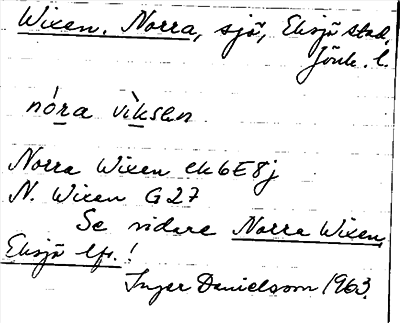 Wixen, Norra, sjö, Eksjö stad,
Jönk. l.
nóra vìksen
Norra Wixen ek6E8j
N. Wixen G27
Se vidare Norra Wixen,
Eksjö lfs.!
Inger Danielsson 1963.